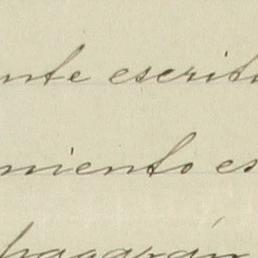 nte escrit
miento es
pagarán